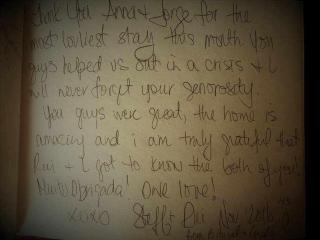 Thank You Anna & Jorge for the
most lovliest stay this month. You
guys helped us out in a crisis & I
will never forget your generosity.
You guys were great, the home is
amazing and i am truly grateful that
Rui + I got to know the both of you!
Muito Obrigada! One love!
xoxo Steff & Rui Nov 2016
from